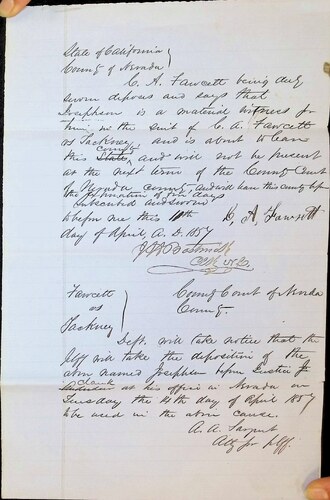 State of California )
County of Nevada )
C. A. Fawcett being duly
sworn deposes and says that
Josephson is a material witness for
him in the suit of C. A. Fawcett
vs Tackney, and is about to leave
County
this State, and will not be present
at the next term of the County Court
of Nevada County and will leave this county before
the
Subscribed and sworn
to before me this 11th
day of April, A. D. 1857
C. A. Fawcett
Fawcett )
vs )
Tackney )
County Court of Nevada
County.
Deft. will take notice that the
Plff will take the deposition of the
above named Josephson before Justice
Clark
at his office in Nevada on
Tuesday the day of April 1857
to be used in the above cause.
A. A. Sargent
Atty for Plff.